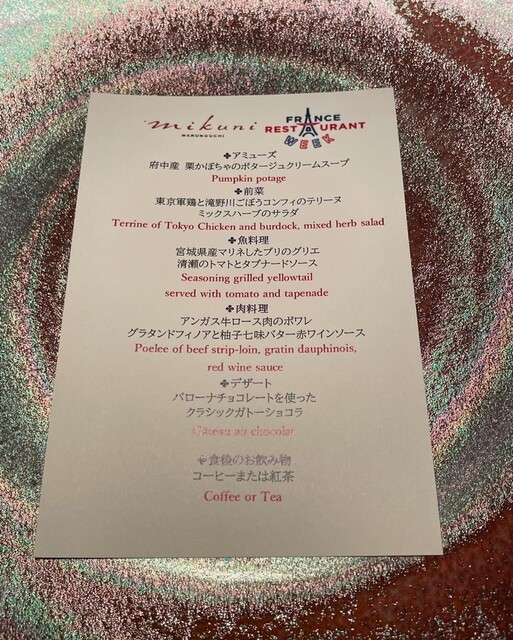 mikuni
MARUNOUCHI
FRANCE
RESTAURANT
WEEK
✤アミューズ
府中産 栗かぼちゃのポタージュクリームスープ
Pumpkin potage
✤前菜
東京軍鶏と滝野川ごぼうコンフィのテリーヌ
ミックスハーブのサラダ
Terrine of Tokyo Chicken and burdock, mixed herb salad
✤魚料理
宮城県産マリネしたブリのグリエ
清瀬のトマトとタプナードソース
Seasoning grilled yellowtail
served with tomato and tapenade
✤肉料理
アンガス牛ロース肉のポワレ
グラタンドフィノアと柚子七味バター赤ワインソース
Poelee of beef strip-loin, gratin dauphinois,
red wine sauce
✤デザート
バローナチョコレートを使った
クラシックガトーショコラ
au chocolat
✤食後のお飲み物
コーヒーまたは紅茶
Coffee or Tea